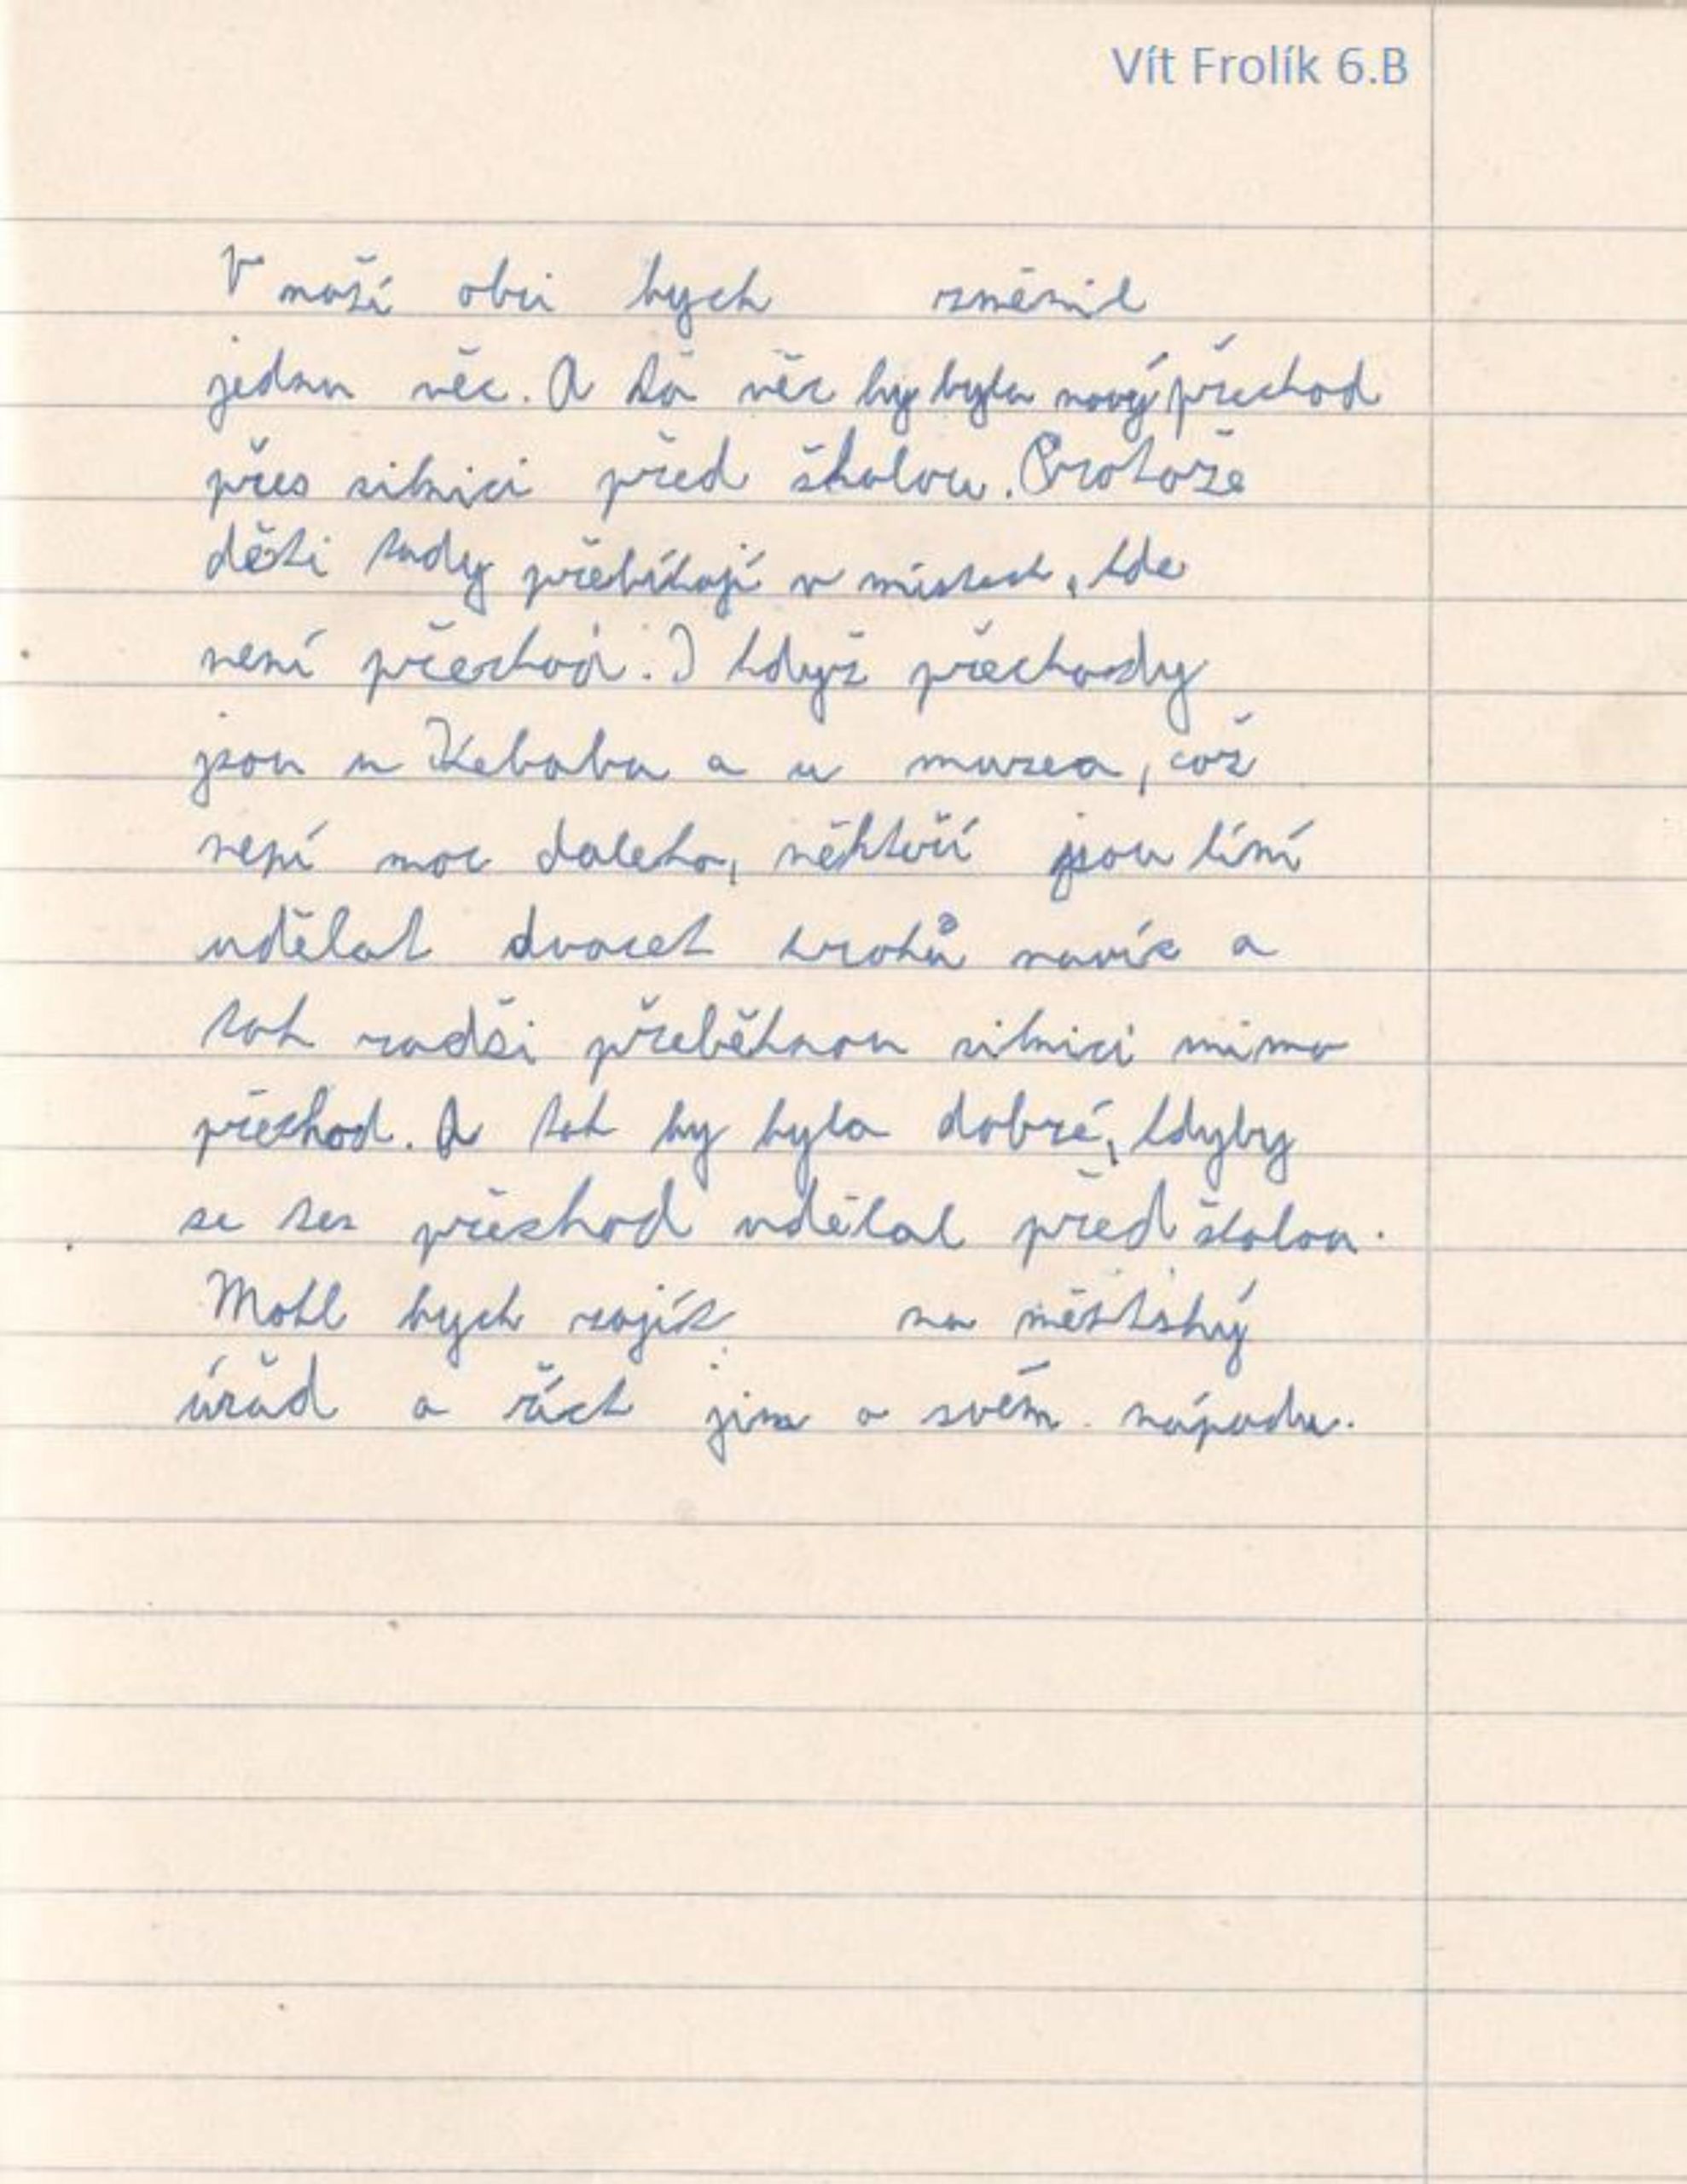 Vít Frolík 6.B
V naší obci bych změnil
jednu věc. A ta věc by byla nový přechod
přes silnici před školou. Protože
děti tudy přebíhají v místech, kde
není přechod. I když přechody
jsou u Kebabu a u muzea, což
není moc daleko, někteří jsou líní
udělat dvacet kroků navíc a
tak radši přeběhnou silnici mimo
přechod. A tak by bylo dobré, kdyby
se ten přechod udělal před školou.
Mohl bych zajít na městský
úřad a říct jim o svém nápadu.